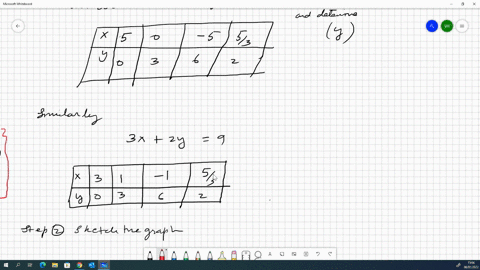 and determine
(y)
x 5 0 -5 5/3
y 0 3 6 2
Similarly
3x + 2y = 9
x 3 1 -1 5/3
y 0 3 6 2
Step ② Sketch the graph